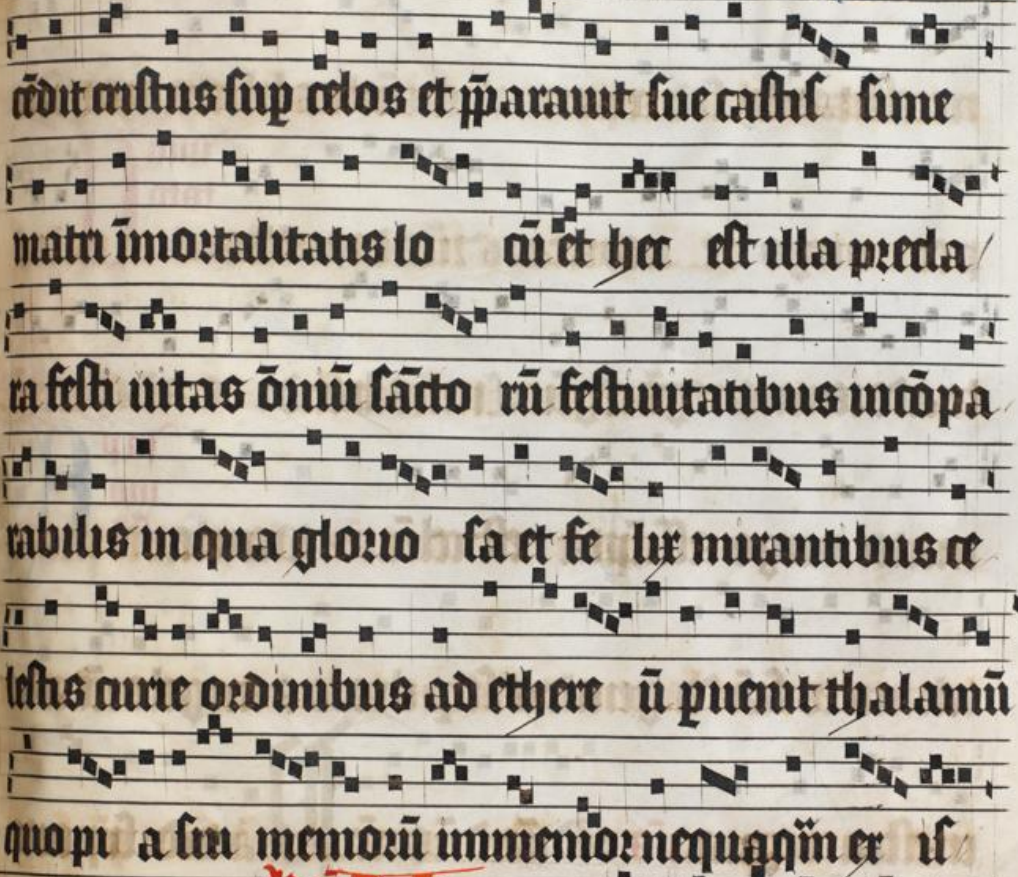 cēdit cristus sup celos et pparauit sue castis sime
matri īmortalitatis lo cū et hec est illa precla
ra festi uitas ōniū sācto rū festiuitatibus incōpa
rabilis in qua glorio sa et fe lix mirantibus ce
lestis curie ordinibus ad ethere ū puenit thalamū
quo pi a sui memorū immemor nequaqm ex is